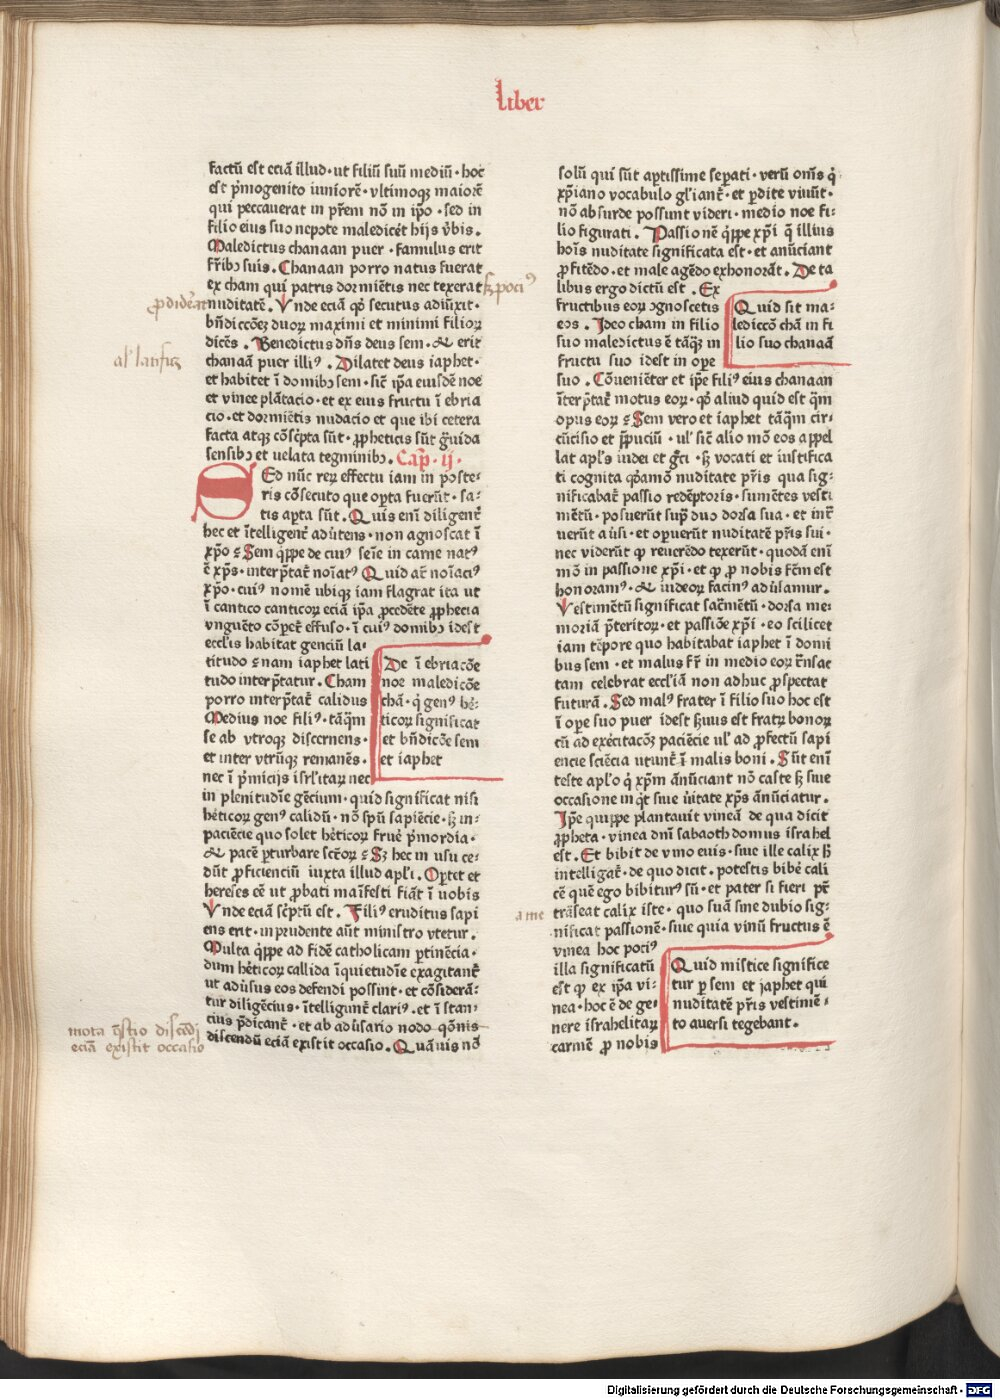 Liber
factū est eciā illud · ut filiū suū mediū · hoc
est p̄mogenito iuniorē · vltimoqꝫ maiorē
qui peccauerat in pr̄em nō in ip̄o · sed in
filio eius suo nepote maledicēt hijs v̄bis.
Maledictus chanaan puer · famulus erit
fr̄ibꝫ suis. Chanaan porro natus fuerat
ex cham qui patris dormiētis nec texerat
nuditatē. Vnde eciā qd̓ secutus adiūxit ·
bn̄diccōeꝫ duoꝝ maximi et minimi filioꝝ
dicēs. Benedictus dn̄s deus sem · & erit
chanaā puer illiꝰ. Dilatet deus iaphet ·
et habitet ī domibꝫ sem · sic̄ ip̄a eiusdē noe
et vinee plātacio · et ex eius fructu ī ebria
cio · et dormiētis nudacio et que ibi cetera
facta atqꝫ cōsc̄pta sūt · ꝓpheticis sūt ḡuida
sensibꝫ et uelata tegminibꝫ. Cap̄ · ij ·
SEd nūc reꝝ effectu iam in poste-
ris cōsecuto que oꝑta fuerūt · sa-
tis aꝑta sūt. Quis enī diligent̄
hec et ītelligent̄ adūtens · non agnoscat ī
xp̄o ⹎ Sem q̄ppe de cuiꝰ seīe in carne natꝰ
ē xp̄s · interp̄tat̄ noīatꝰ Quid at̄ noīaciꝰ
xp̄o · cuiꝰ nomē ubiqꝫ iam flagrat ita ut
ī cantico canticoꝝ eciā ip̄a p̄cedēte ꝓphecia
vnguēto cōꝑet̄ effuso · ī cuiꝰ domibꝫ idest
eccl̄is habitat genciū la-
titudo ⹎ nam iaphet lati
tudo interp̄tatur. Cham
porro interp̄tat̄ calidus
Medius noe filiꝰ · tāq̄m
se ab vtroqꝫ discernens ·
et inter vtrūqꝫ remanēs ·
nec ī p̄micijs isrl̄itaꝝ nec
De ī ebriacōe
noe maledicōe
chā · q̄ genꝰ hē-
ticoꝝ significat
et bn̄dicōe sem
et iaphet
in plenitudīe gēcium · quid significat nisi
hēticoꝝ genꝰ calidū · nō spū sapiēcie · sꝫ in-
paciēcie quo solet hēticoꝝ fruē p̄mordia ·
& pacē ꝑturbare sct̄oꝝ ⹎ Sꝫ hec in usu ce-
dūt ꝓficienciū iuxta illud apl̄i. Oꝑtet et
hereses eē ut ꝓbati maīfesti fiāt ī uobis
Vnde eciā sc̄ptū est. Filiꝰ eruditus sapi
ens erit · inprudente aūt ministro vtetur.
Multa q̄ppe ad fidē catholicam ꝑtinēcia ·
dum hēticoꝝ callida īquietudīe exagitant̄
ut adūsus eos defendi possint · et cōsiderā-
tur diligēcius · ītelligunt̄ clariꝰ · et ī stan-
cius p̄dicant̄ · et ab adūsario nodo qōnis
discendū eciā existit occasio. Quāuis nō
solū qui sūt aꝑtissime seꝑati · verū om̄s q̄
xp̄iano vocabulo gl̄iant̄ · et ꝑdite viuūt ·
nō absurde possunt videri · medio noe fi-
lio figurati. Passionē q̄ppe xp̄i q̄ illius
hoīs nuditate significata est · et anūciant
ꝓfitēdo · et male agēdo exhonorāt. De ta
libus ergo dictū est. Ex
fructibus eoꝝ ꝯgnoscetis
eos. Ideo cham in filio
suo maledictus ē tāqꝫ in
fructu suo idest in oꝑe
Quid sit ma-
lediccō chā in fi
lio suo chanaā
suo. Cōueniēter et ip̄e filiꝰ eius chanaan
īterp̄tat̄ motus eoꝝ · qd̓ aliud quid est q̄m
opus eoꝝ ⹎ Sem vero et iaphet tāq̄m cir-
cūcisio et p̄puciū · ul̓ sic̄ alio mō eos appel
lat apl̓s iudei et ḡci · sꝫ vocati et iustifica
ti cognita qd̓āmō nuditate pr̄is qua sig-
nificabat̄ passio redēptoris · sumētes vesti
mētū · posuerūt sup̄ duo dorsa sua · et int̄
uerūt aūsi · et oꝑuerūt nuditatē pr̄is sui ·
nec viderūt qd̓ reuerēdo texerūt · quodā enī
mō in passione xp̄i · et qd̓ ꝓ nobis fc̄m est
honoramꝰ · & iudeoꝝ facinꝰ adūsamur.
Vestimētū significat sac̄mētū · dorsa me-
moriā p̄teritoꝝ · et passiōe xp̄i · eo scilicet
iam tēpore quo habitabat iaphet ī domi
bus sem · et malus fr̄ in medio eoꝝ t̄nsac
tam celebrat eccl̄iā non adhuc ꝓspectat
futurā. Sed malꝰ frater ī filio suo hoc est
ī oꝑe suo puer idest s̄uus est fratꝝ bonoꝝ
cū ad exēcitacōꝫ paciēcie ul̓ ad ꝓfectū sapi
encie sciēcia utunt̄ ī malis boni. Sūt enī
teste apl̓o q̄ xp̄m ānūciant nō caste sꝫ siue
occasione in qt̄ siue ūitate xp̄s ānūciatur.
Ip̄e quippe plantauit vineā de qua dicit
ꝓpheta · vinea dnī sabaoth domus israhel
est. Et bibit de vino euis · siue ille calix sꝫ
intelligat̄ · de quo dicit · potestis bibē cali
cē quē ego bibiturꝰ sū · et pater si fieri pt̄
trāseat calix iste · quo suā sine dubio sig-
nificat passionē · siue quia vinū fructus ē
vinea hoc pociꝰ
illa significatū
est qd̓ ex ip̄a vi-
nea · hoc ē de ge-
nere israhelitaꝝ
carnē ꝓ nobis
Quid mistice significe
tur ꝑ sem et japhet qui
nuditatē pr̄is vestimē-
to auersi tegebant.
ꝓdiderat
sꝫ pociꝰ
al̓ latifiꝫ
mota q̄stio discēdi
eciā existit occasio
a me
Digitalisierung gefördert durch die Deutsche Forschungsgemeinschaft - DFG